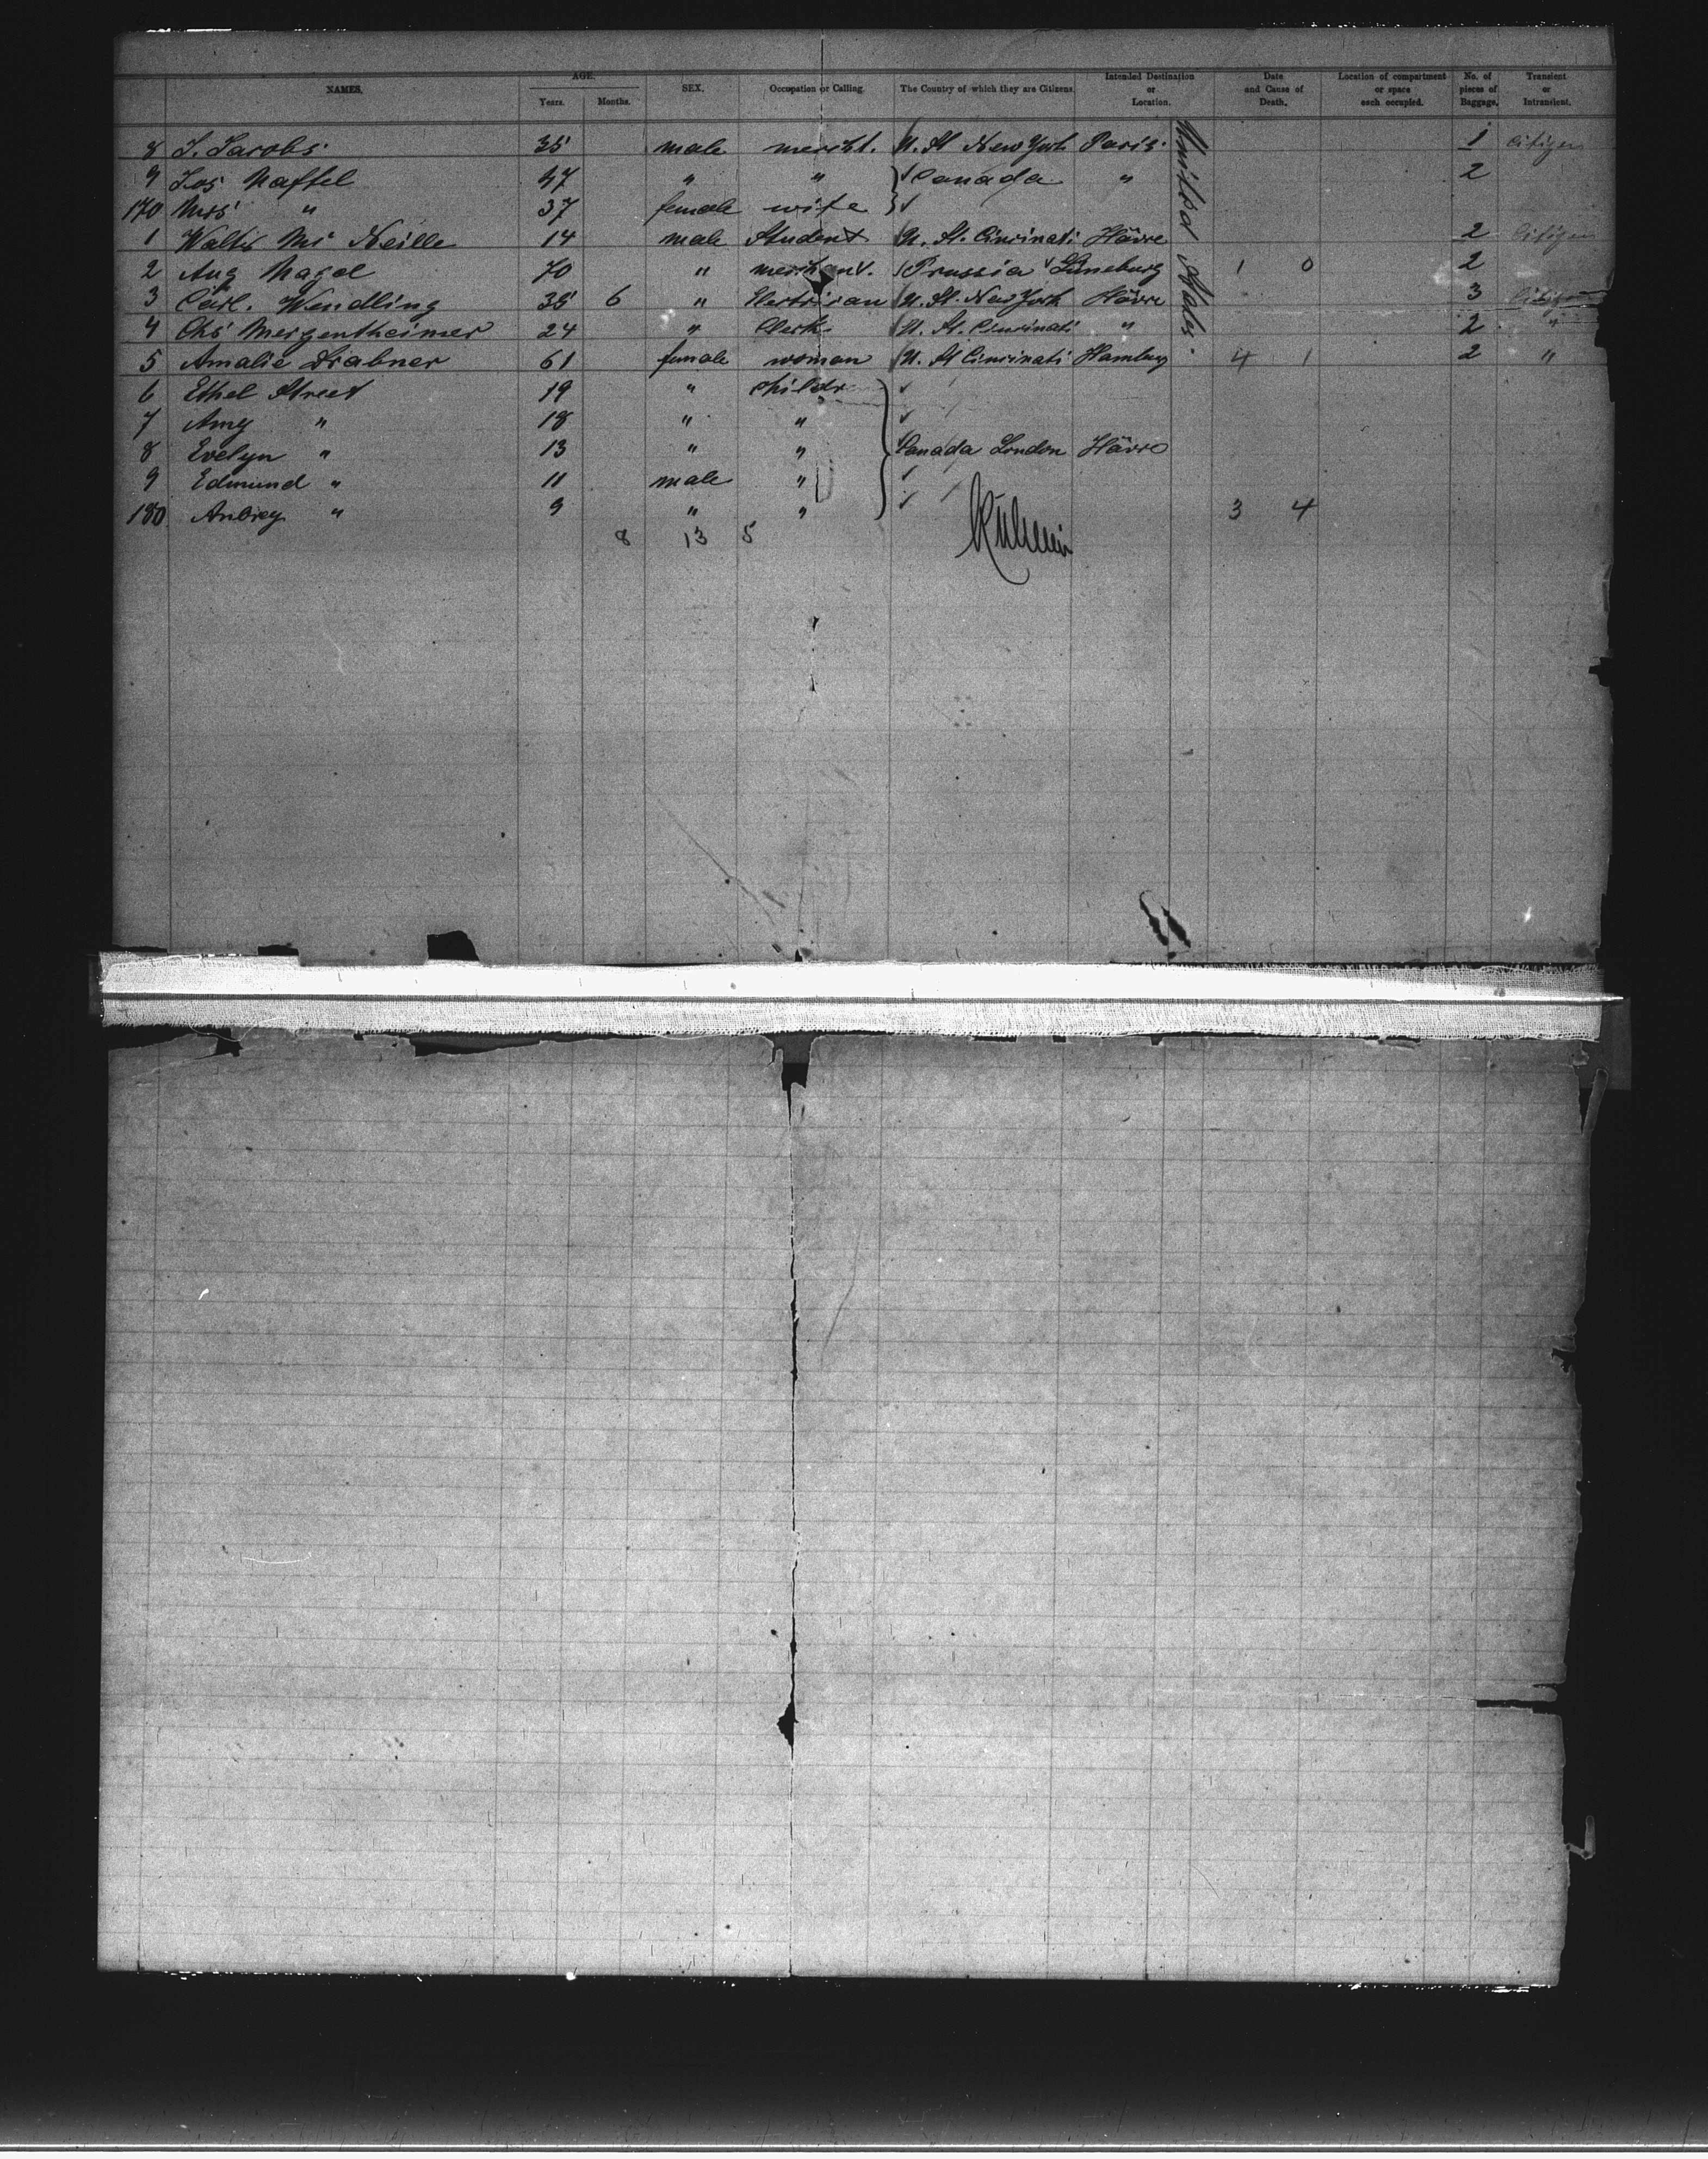 NAMES. AGE. Years. Months. SEX. Occupation or Calling. The Country of which they are Citizens. Intended Destination or Location. Date and Cause of Death. Location of compartment or space each occupied. No. of pieces of Baggage. Transient or Intransient.
United States.
8 J. Jacobs. 35 male mercht. U. St New York Paris. 1 citizen
9 Jos. Naffel 47 " " Canada " 2
170 Mrs " 37 female wife
1 Mc Neille 14 male Student U. St. Cincinati Hâvre 2 Citizen
2 Aug Nagel 70 " merchant. Prussia Lüneburg 1 0 2
3 Carl. Wendling 35 6 " Electrican U. St. New York Hâvre 3 Citizen
4 Chs Mergentheimer 24 " Clerk U. St. Cincinati " 2 "
5 Amalie Drabner 61 female woman U. St Cincinati Hamburg 4 1 2 "
6 Ethel Street 19 " childr
7 Amy " 18 " "
8 Evelyn " 13 " " Canada London Hâvre
9 Edmund " 11 male "
180 Aubrey " 9 " " 3 4
8 13 5